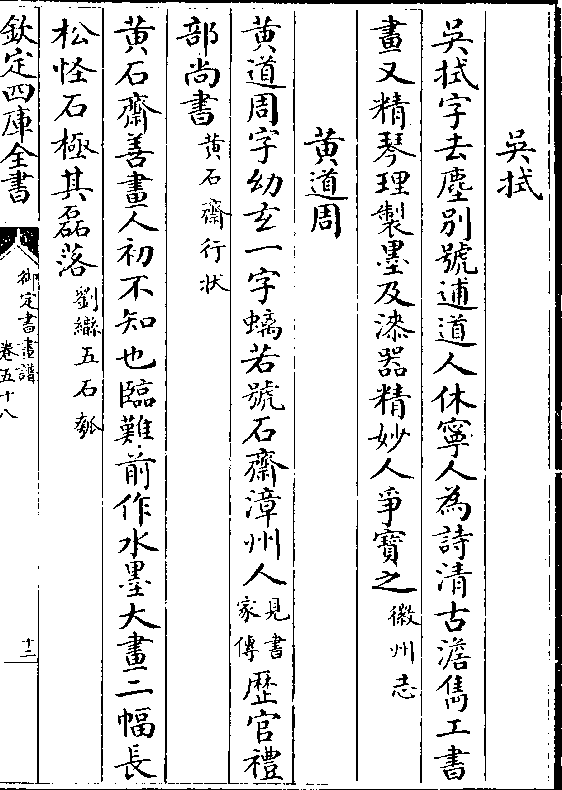 吳拭
吳拭字去塵別號逋道人休寧人為詩清古澹雋工書
畫又精琴理製墨及漆器精妙人爭寶之徽州志
黄道周
黄道周字幼玄一字螭若號石齋漳州人見書家傳歴官禮
部尚書黄石齋行状
黄石齋善畫人初不知也臨難前作水墨大畫二幅長
松怪石極其磊落劉𬙋五石瓠
欽定四庫全書
御定書畫譜
卷五十八
十二